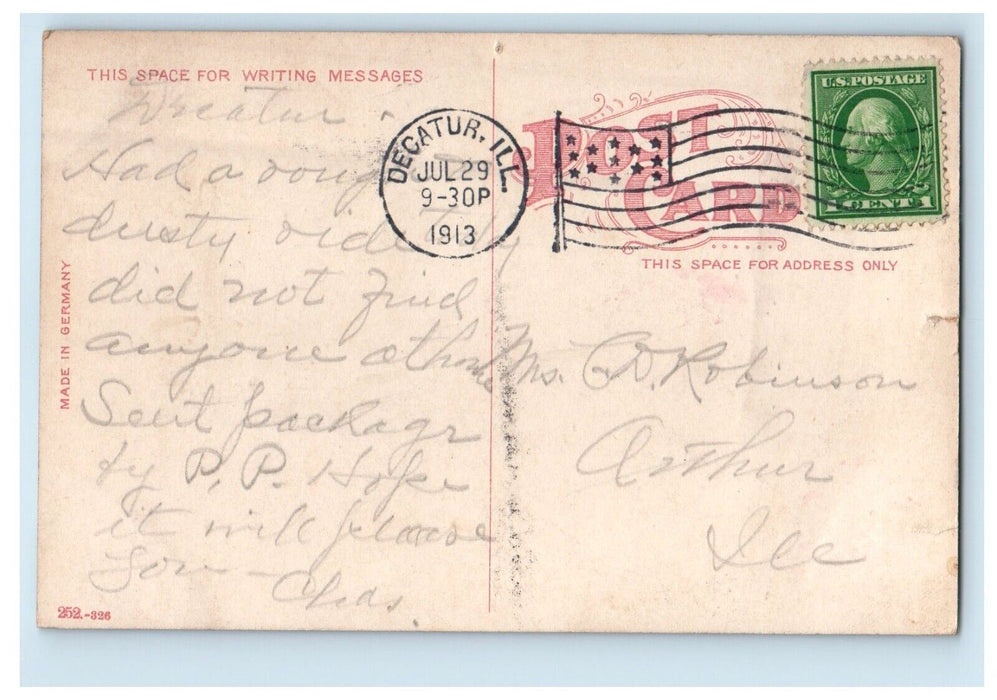 THIS SPACE FOR WRITING MESSAGES
Decatur -
Had a
dusty ride
did not find
anyone at home
Sent package
by P. P. Hope
it will please
you - Chas
MADE IN GERMANY
252.-326
DECATUR, ILL.
JUL 29
9-30P
1913
POST CARD
U.S. POSTAGE
1 CENT 1
THIS SPACE FOR ADDRESS ONLY
Mrs. C. D. Robinson
Arthur
Ill